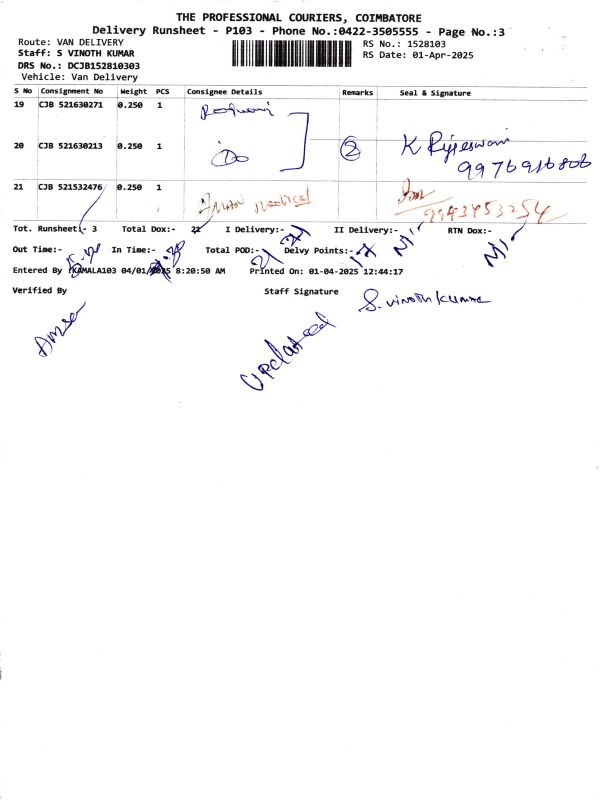 THE PROFESSIONAL COURIERS, COIMBATORE
Delivery Runsheet - P103 - Phone No.:0422-3505555 - Page No.:3
Route: VAN DELIVERY
Staff: S VINOTH KUMAR
DRS No.: DCJB152810303
Vehicle: Van Delivery
RS No.: 1528103
RS Date: 01-Apr-2025
S No Consignment No Weight PCS Consignee Details Remarks Seal & Signature
19 CJB 521630271 0.250 1
20 CJB 521630213 0.250 1 2 K Rajeswari
9976916806
21 CJB 521532476 0.250 1 Medical
9943453254
Tot. Runsheet:- 3 Total Dox:- 21 I Delivery:- 21 II Delivery:- Nil RTN Dox:- Nil
Out Time:- In Time:- Total POD:- 21 Delvy Points:- 17
Entered By :KAMALA103 04/01/2025 8:20:50 AM Printed On: 01-04-2025 12:44:17
Verified By Staff Signature S. vinoth kumar
updated